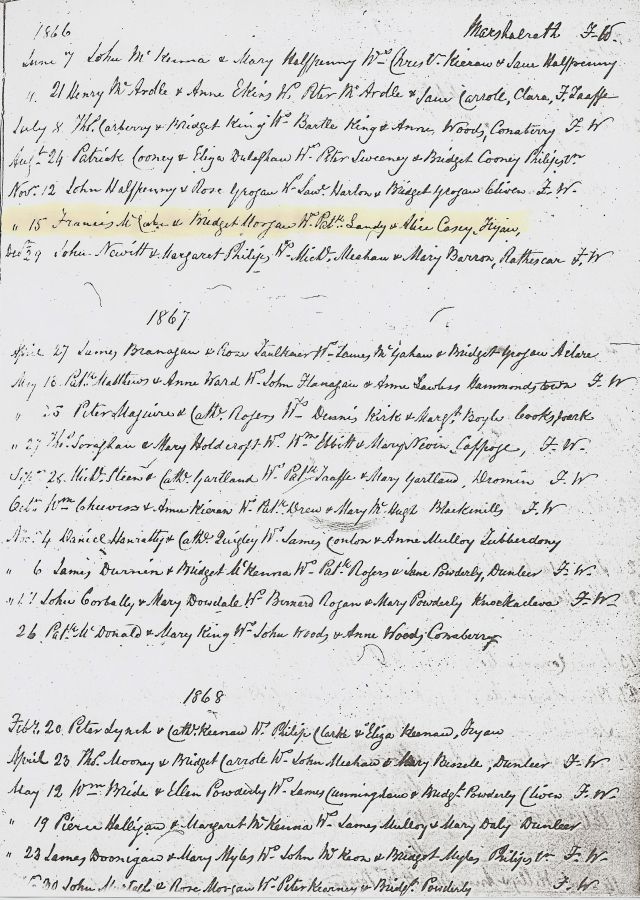 1866 Marshalrath F.W.
June 7 John McKenna & Mary Halfpenny Ws Chrisr Kieran & Jane Halfpenny
" 21 Henry McArdle & Anne Ekins Ws Peter McArdle & Jane Carroll, Clara, F. Taaffe
July 8 Ths Carberry & Bridget King Ws Bartle King & Anne Woods, Conaberry F.W
Augt 24 Patrick Cooney & Eliza Ws Peter Sweeney & Bridget Cooney
Novr 12 John Halfpenny & Rose Grogan Ws Harlon & Bridget Grogan F.W.
" 15 Francis McCabe & Bridget Morgan Ws Patk Landy & Alice Casey,
29 John Newitt & Margaret Philips Ws Michl Meehan & Mary Barron, Rathescar F.W
1867
April 27 James Branagan & Rose Faulkner Ws James McGahan & Bridget Grogan
May 16 Patk Matthews & Anne Ward Ws John Flanagan & Anne Lawless Hammondstown F.W
" 25 Peter Maguire & Cathe Rogers Ws Dennis Kirk & Margt Boyle
" 27 Ths Soraghan & Mary Holdcroft Ws Wm & Mary Nevin Cappoge, F.W.
28 Michl & Cathe Gartland Ws Patk Taaffe & Mary Gartland, Dromin F.W
Octr Wm & Anne Kieran Ws Patk Drew & Mary McHugh Blackmills F.W
Nov 4 Daniel Hanratty & Cathe Quigley Ws James Conlon & Anne Mulloy Tubberdony
" 6 James Durnin & Bridget McKenna Ws Patk Rogers & Jane Powderly, Dunleer F.W.
" 17 John Corbally & Mary Dowdale Ws Bernard Rogan & Mary Powderly F.W.
26 Patk McDonald & Mary King Ws John Woods & Anne Woods, Conaberry
1868
Feby 20 Peter Lynch & Cathe Keenan Ws Philip Clarke & Eliza Keenan,
April 23 Ths Mooney & Bridget Carrole Ws John Meehan & Mary Russele, Dunleer F.W
May 12 Wm Bride & Ellen Powderly Ws James Cunningham & Bridgt Powderly F.W.
" 19 Pierce Halligan & Margaret McKenna Ws James Mulloy & Mary Daly Dunleer
" 23 James & Mary Myles Ws John McKeon & Bridget Myles F.W.
" 30 John & Rose Morgan Ws Peter Kearney & Bridgt Powderly